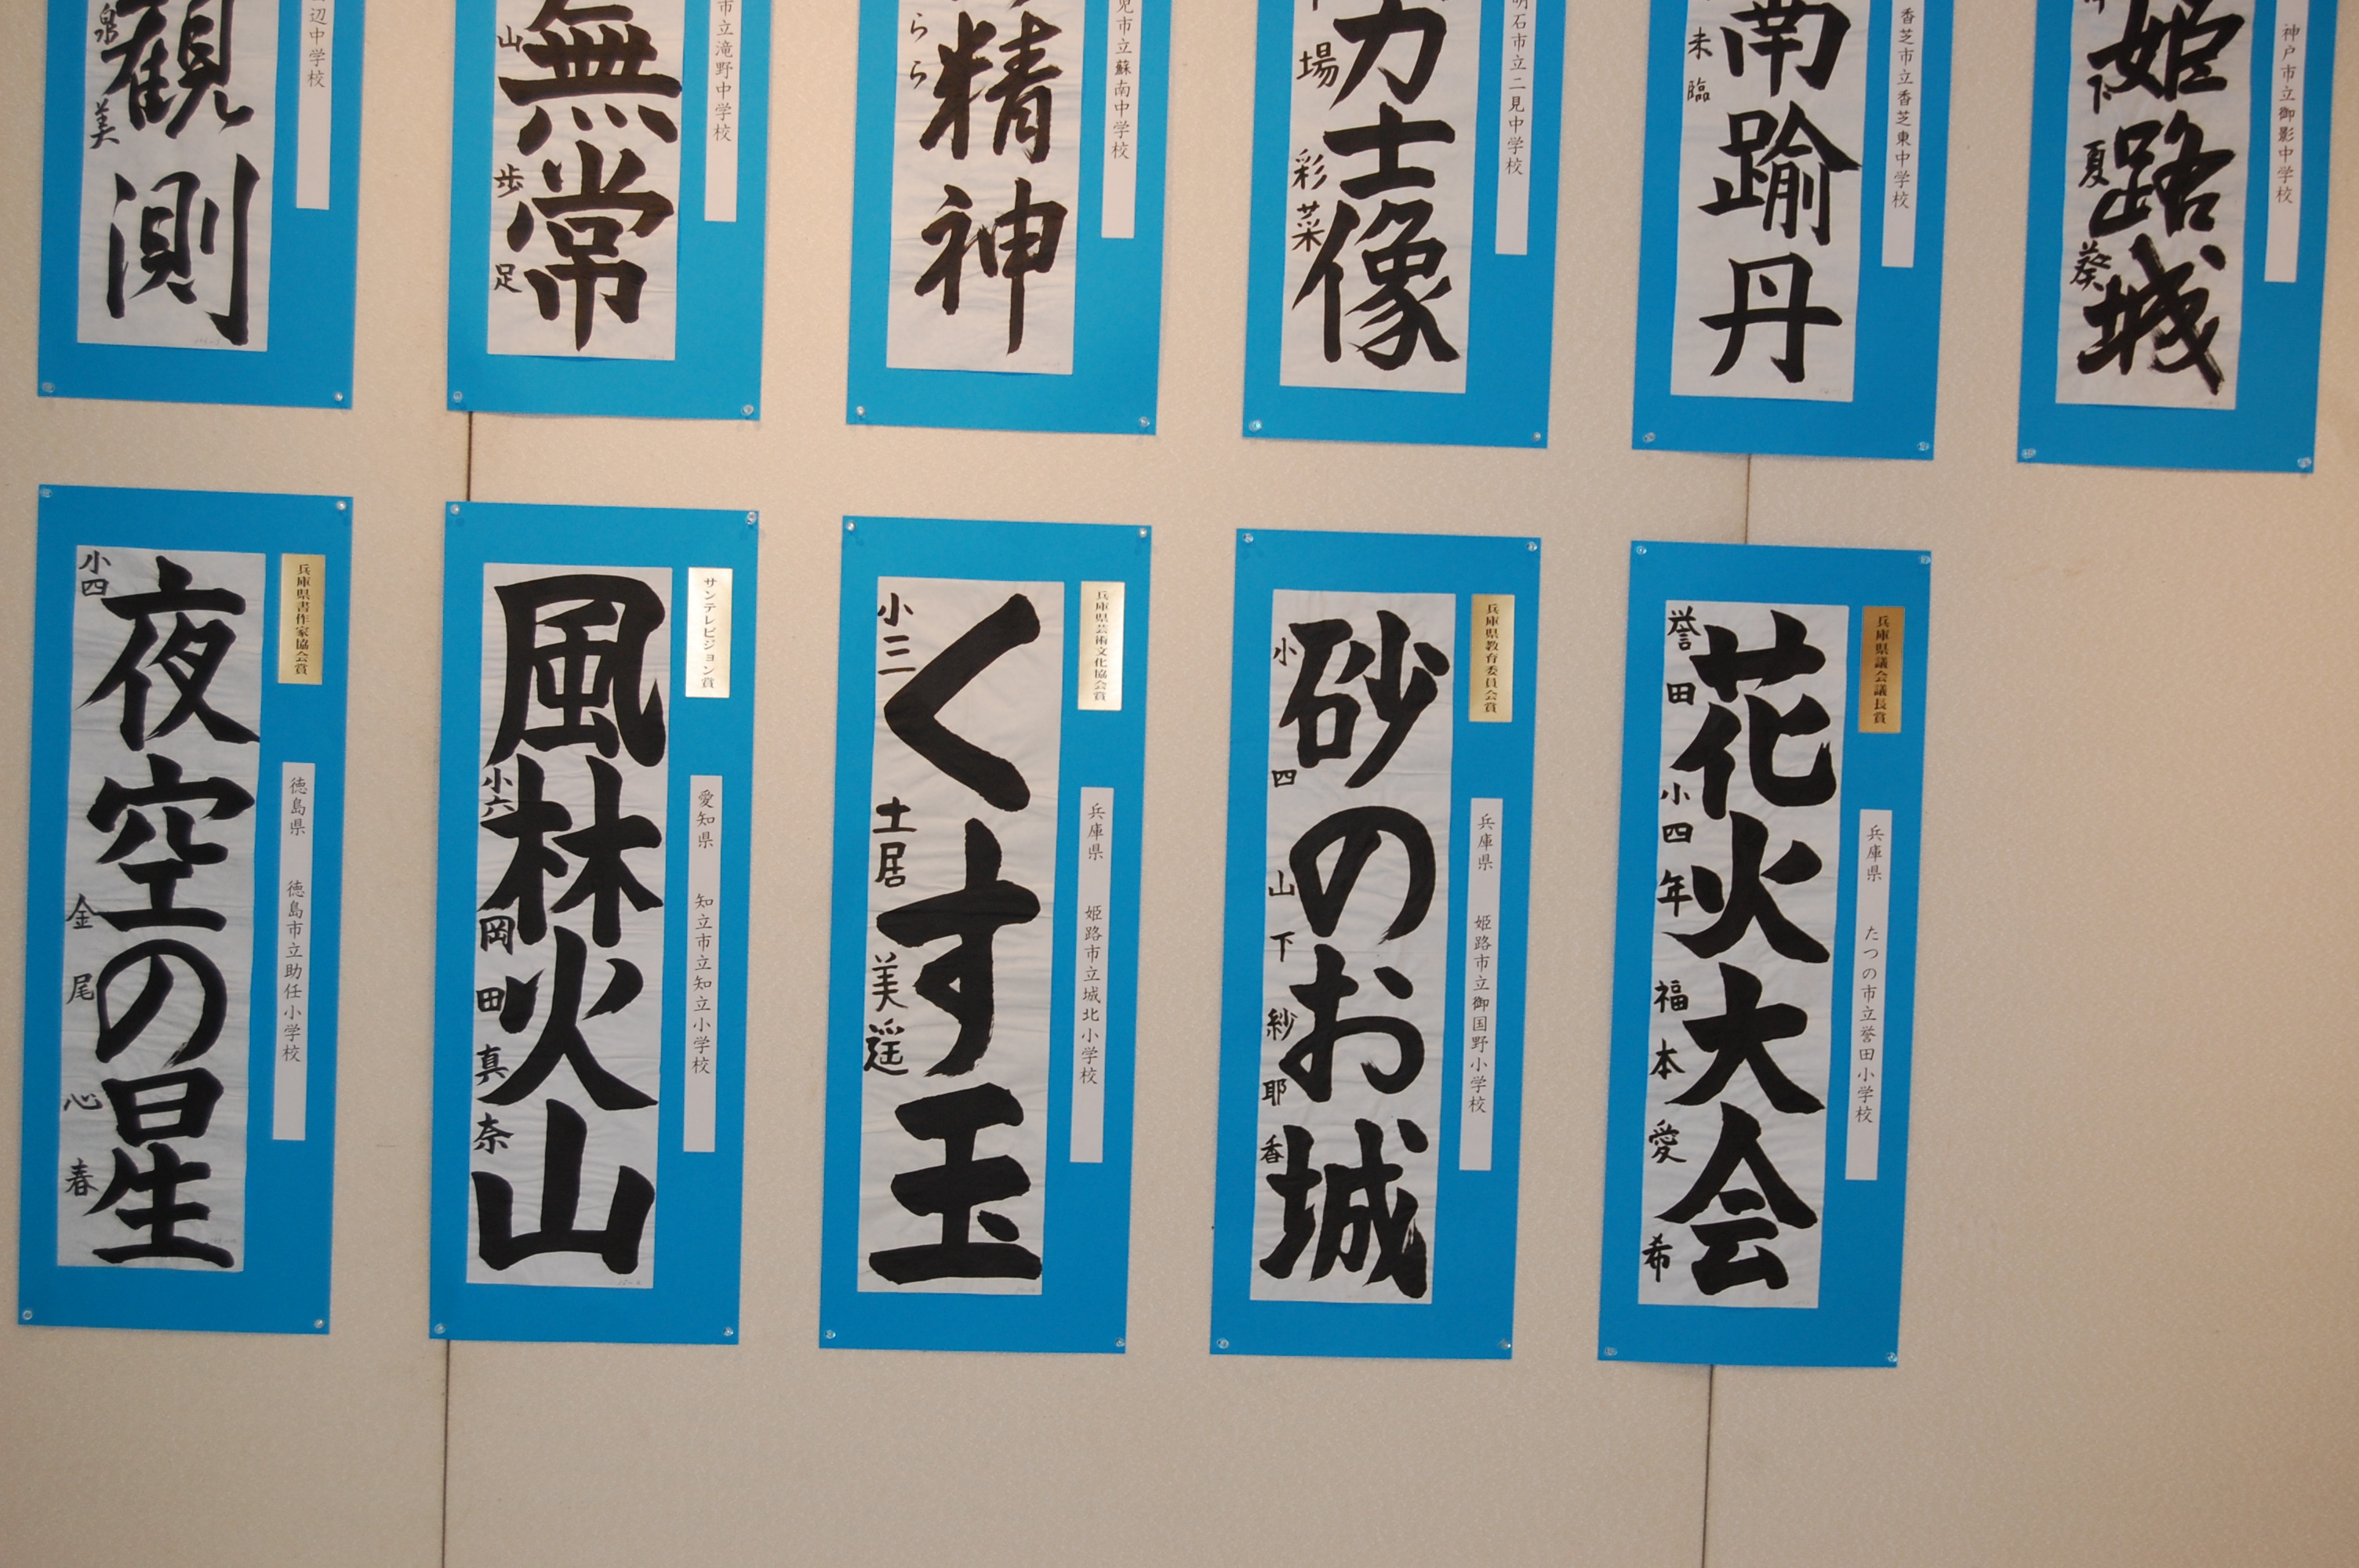 姫路城
下夏葵
神戸市立御影中学校
南踰丹
未臨
香芝市立香芝東中学校
力士像
場彩菜
明石市立二見中学校
精神
らら
児市立蘇南中学校
無常
山歩足
市立滝野中学校
観測
泉美
辺中学校
兵庫県議会議長賞
兵庫県 たつの市立誉田小学校
花火大会
誉田小四年福本愛希
兵庫県教育委員会賞
兵庫県 姫路市立御国野小学校
砂のお城
小四山下紗耶香
兵庫県芸術文化協会賞
兵庫県 姫路市立城北小学校
くす玉
小三土居美遥
サンテレビジョン賞
愛知県 知立市立知立小学校
風林火山
小六岡田真奈
兵庫県書作家協会賞
徳島県 徳島市立助任小学校
夜空の星
小四金尾心春